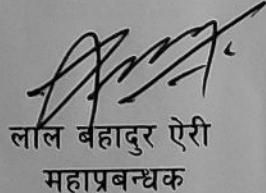 लाल बहादुर ऐरी
महाप्रबन्धक